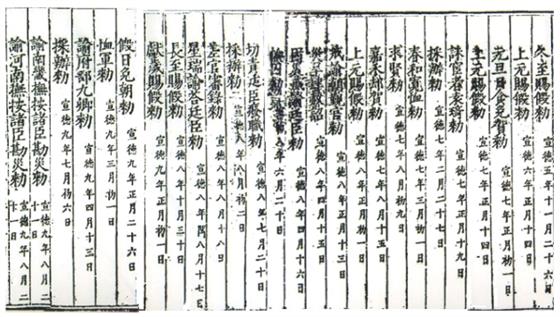 冬至賜假勅 宣德五年十一月二十六日
上元賜假勅 宣德六年正月十四日
元旦日食免賀勅 宣德七年正月初一日
上元賜假勅 宣德七年正月十四日
誅宦者袁琦勅 宣德七年正月十九日
採辦勅 宣德七年二月二十七日
春和寬恤勅 宣德七年三月初一日
求賢勅 宣德七年八月初九日
嘉禾却賀勅
上元賜假勅 宣德八年正月初一日
戒諭朝覲官勅 宣德八年正月十三日
宣德八年四月十五日
宣德八年四月十六日
八年六月二十日
切責廷臣怠職勅 宣德八年七月二十日
採辦勅 宣德八年八月初二日
宣德八年八月十八日
星瑞諭各廷臣勅 宣德八年閏八月十七日
長至賜假勅 宣德八年十月三十日
獻歲賜假勅 宣德九年正月初一日
假日免朝勅 宣德九年正月二十六日
恤軍勅 宣德九年三月初一日
諭府部九卿勅 宣德九年四月十三日
採辦勅 宣德九年七月初六日
諭南畿撫按諸臣勘災勅 宣德九年八月二十一日
諭河南撫按諸臣勘災勅 宣德九年八月二十一日